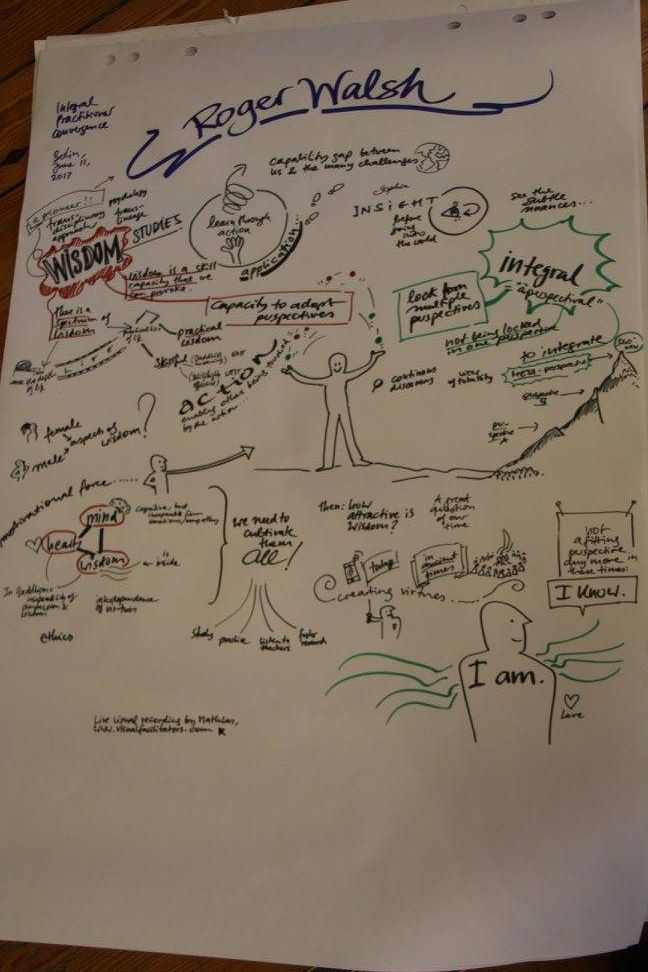 Roger Walsh
Integral
Practitioner
Convergence
Berlin,
June 11,
2017
capability gap between
us & the many challenges
a pioneer!!
trans-
disciplinary
approach
psychology
trans-
lineage
WISDOM
STUDIES
learn through
action
application...
INSIGHT
before
going
into the
world
see the
subtle
nuances...
Wisdom is a skill
capacity that we
can
there is a
spectrum of
wisdom
capacity to adapt
perspectives
look from
multiple
perspectives
integral
"aperspectival"
not being locked
in one perspective
practical
wisdom
skilful
action
enabling other being toward
by the action...
continous
discovery
view
of totality
to integrate
meta-perspective
perspective
perspective
A
female
male
aspects of wisdom?
motivational force.....
mind
heart
wisdom
in Buddhism:
inseparability of
compassion &
wisdom
interdependence
of virtues
ethics
we need to
cultivate
them
all!
study
practice
listen to
teachers
foster
research
Then: how
attractive is
wisdom?
A great
question
of our
time
today
in ancient
times
creating virtues
not
a fitting
perspective
any more in
these times.
I KNOW.
I am.
Love
Live visual recording by Mathias,
www.visualfacilitators.com